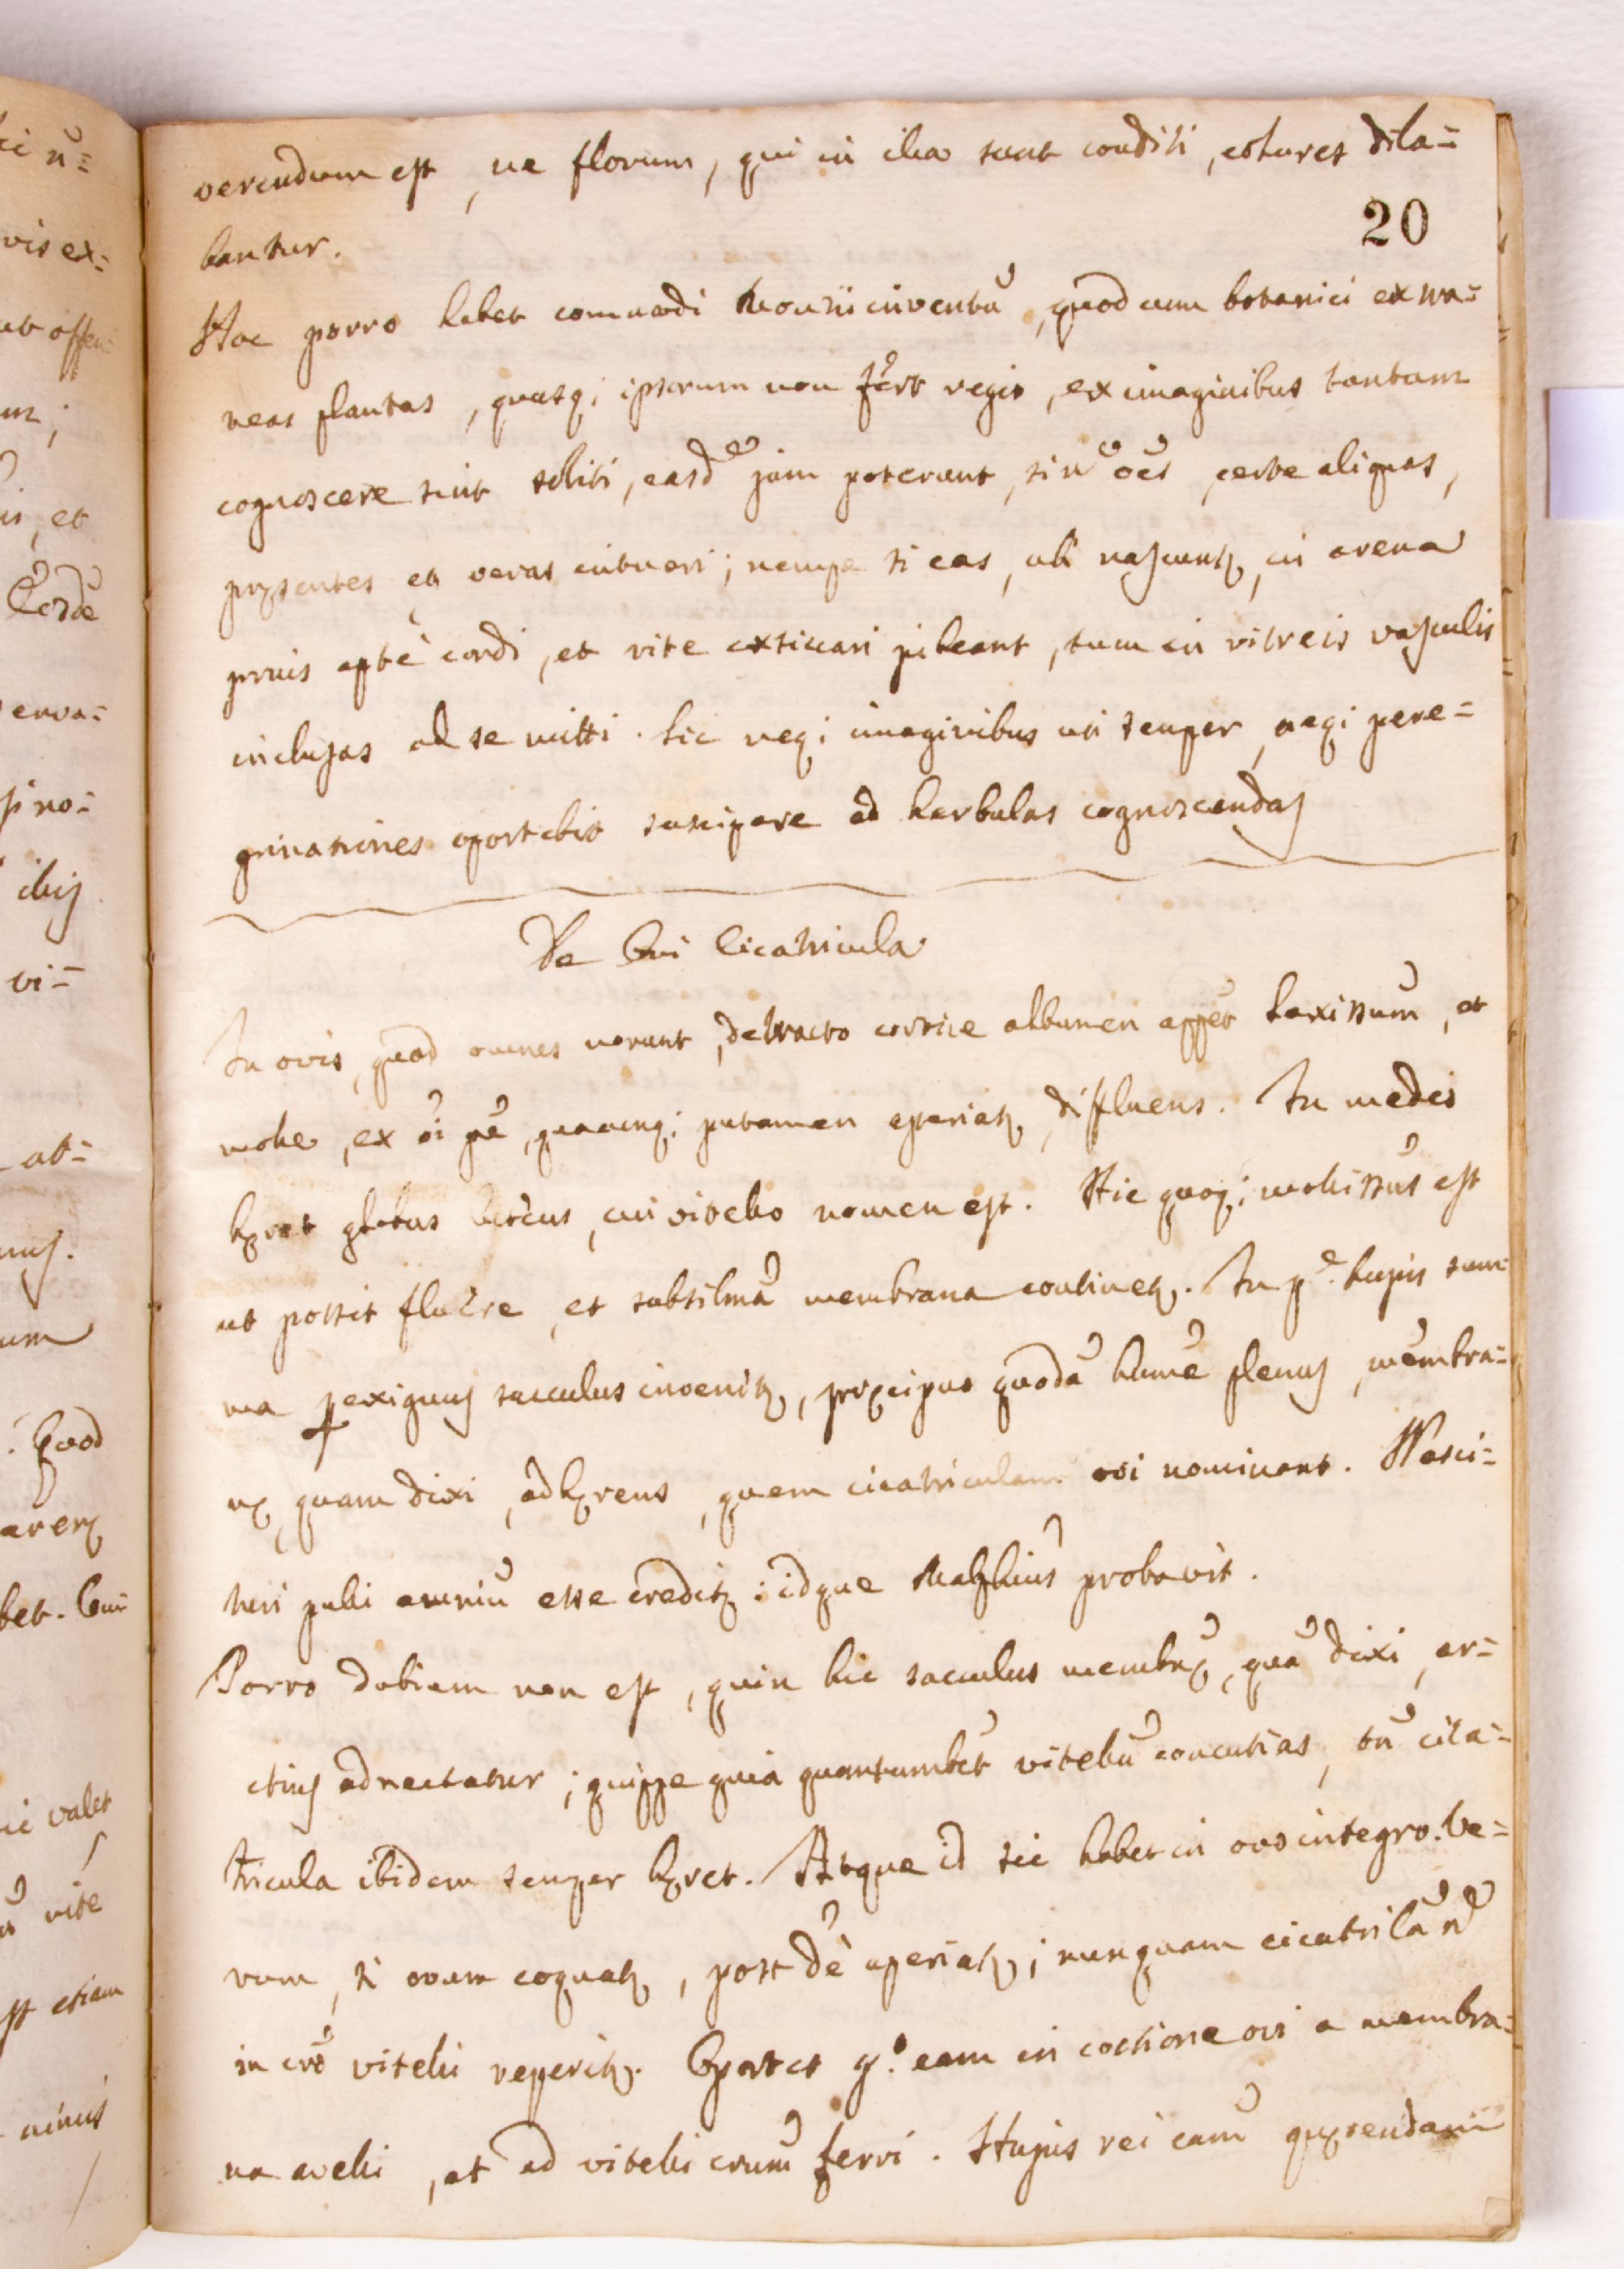 verendum est, ne florum, qui in illa sunt conditi, colores dila=
20
bantur.
Hoc porro habet comodi Montii inventũ, quod cum botanici extra=
neas plantas, quasq; ipsorum non fert regio, ex imaginibus tantum
cognoscere sint soliti, easd jam poterunt, si n oẽs, certe aliquas,
pręsentes et veras intueri; nempe si eas, ubi nascuntr, in arena
prius aptè condi, et rite exsiccari jubeant, tum in vitreis vasculis
inclusas ad se mitti. Sic neq; imaginibus uti semper, neq; pere=
grinationes oportebit suscipere ad herbulas cognoscendas
De Ovi Cicatricula
In ovis, quod omnes norunt, detracto cortice albumen appet laxissimum, et
molle, ex oi pte, quacunq; putamen aperiatr, diffluens. In medio
hęret globus luteus, cui vitello nomen est. Hic quoq; mollissus est
ut possit fluere, et subtilmã membrana continetr. In pe. hujus sum
ma perexiguus sacculus invenitr, pręcipuo quodã humẽ plenus, membra=
nę, quam dixi, adhęrens, quem cicatriculam ovi nominant. Nasci=
turi pulli amniũ esse creditr; idque Malphius probavit.
Porro dubium non est, quin hic sacculus membrę, quã dixi, ar=
ctius adnectatur; quippe quia quantumbet vitellũ concutias, tñ cica=
tricula ibidem semper hęret. Atque id sic habet in ovo integro. Ve=
rum, si ovum coquatr, post dè aperiatr; nunquam cicatrilã n
in crõ vitelli reperitr. Oportet go. eam in coctione ovi a membra=
na avelli, et ad vitelli crum ferri. Hujus rei cam quęrendam